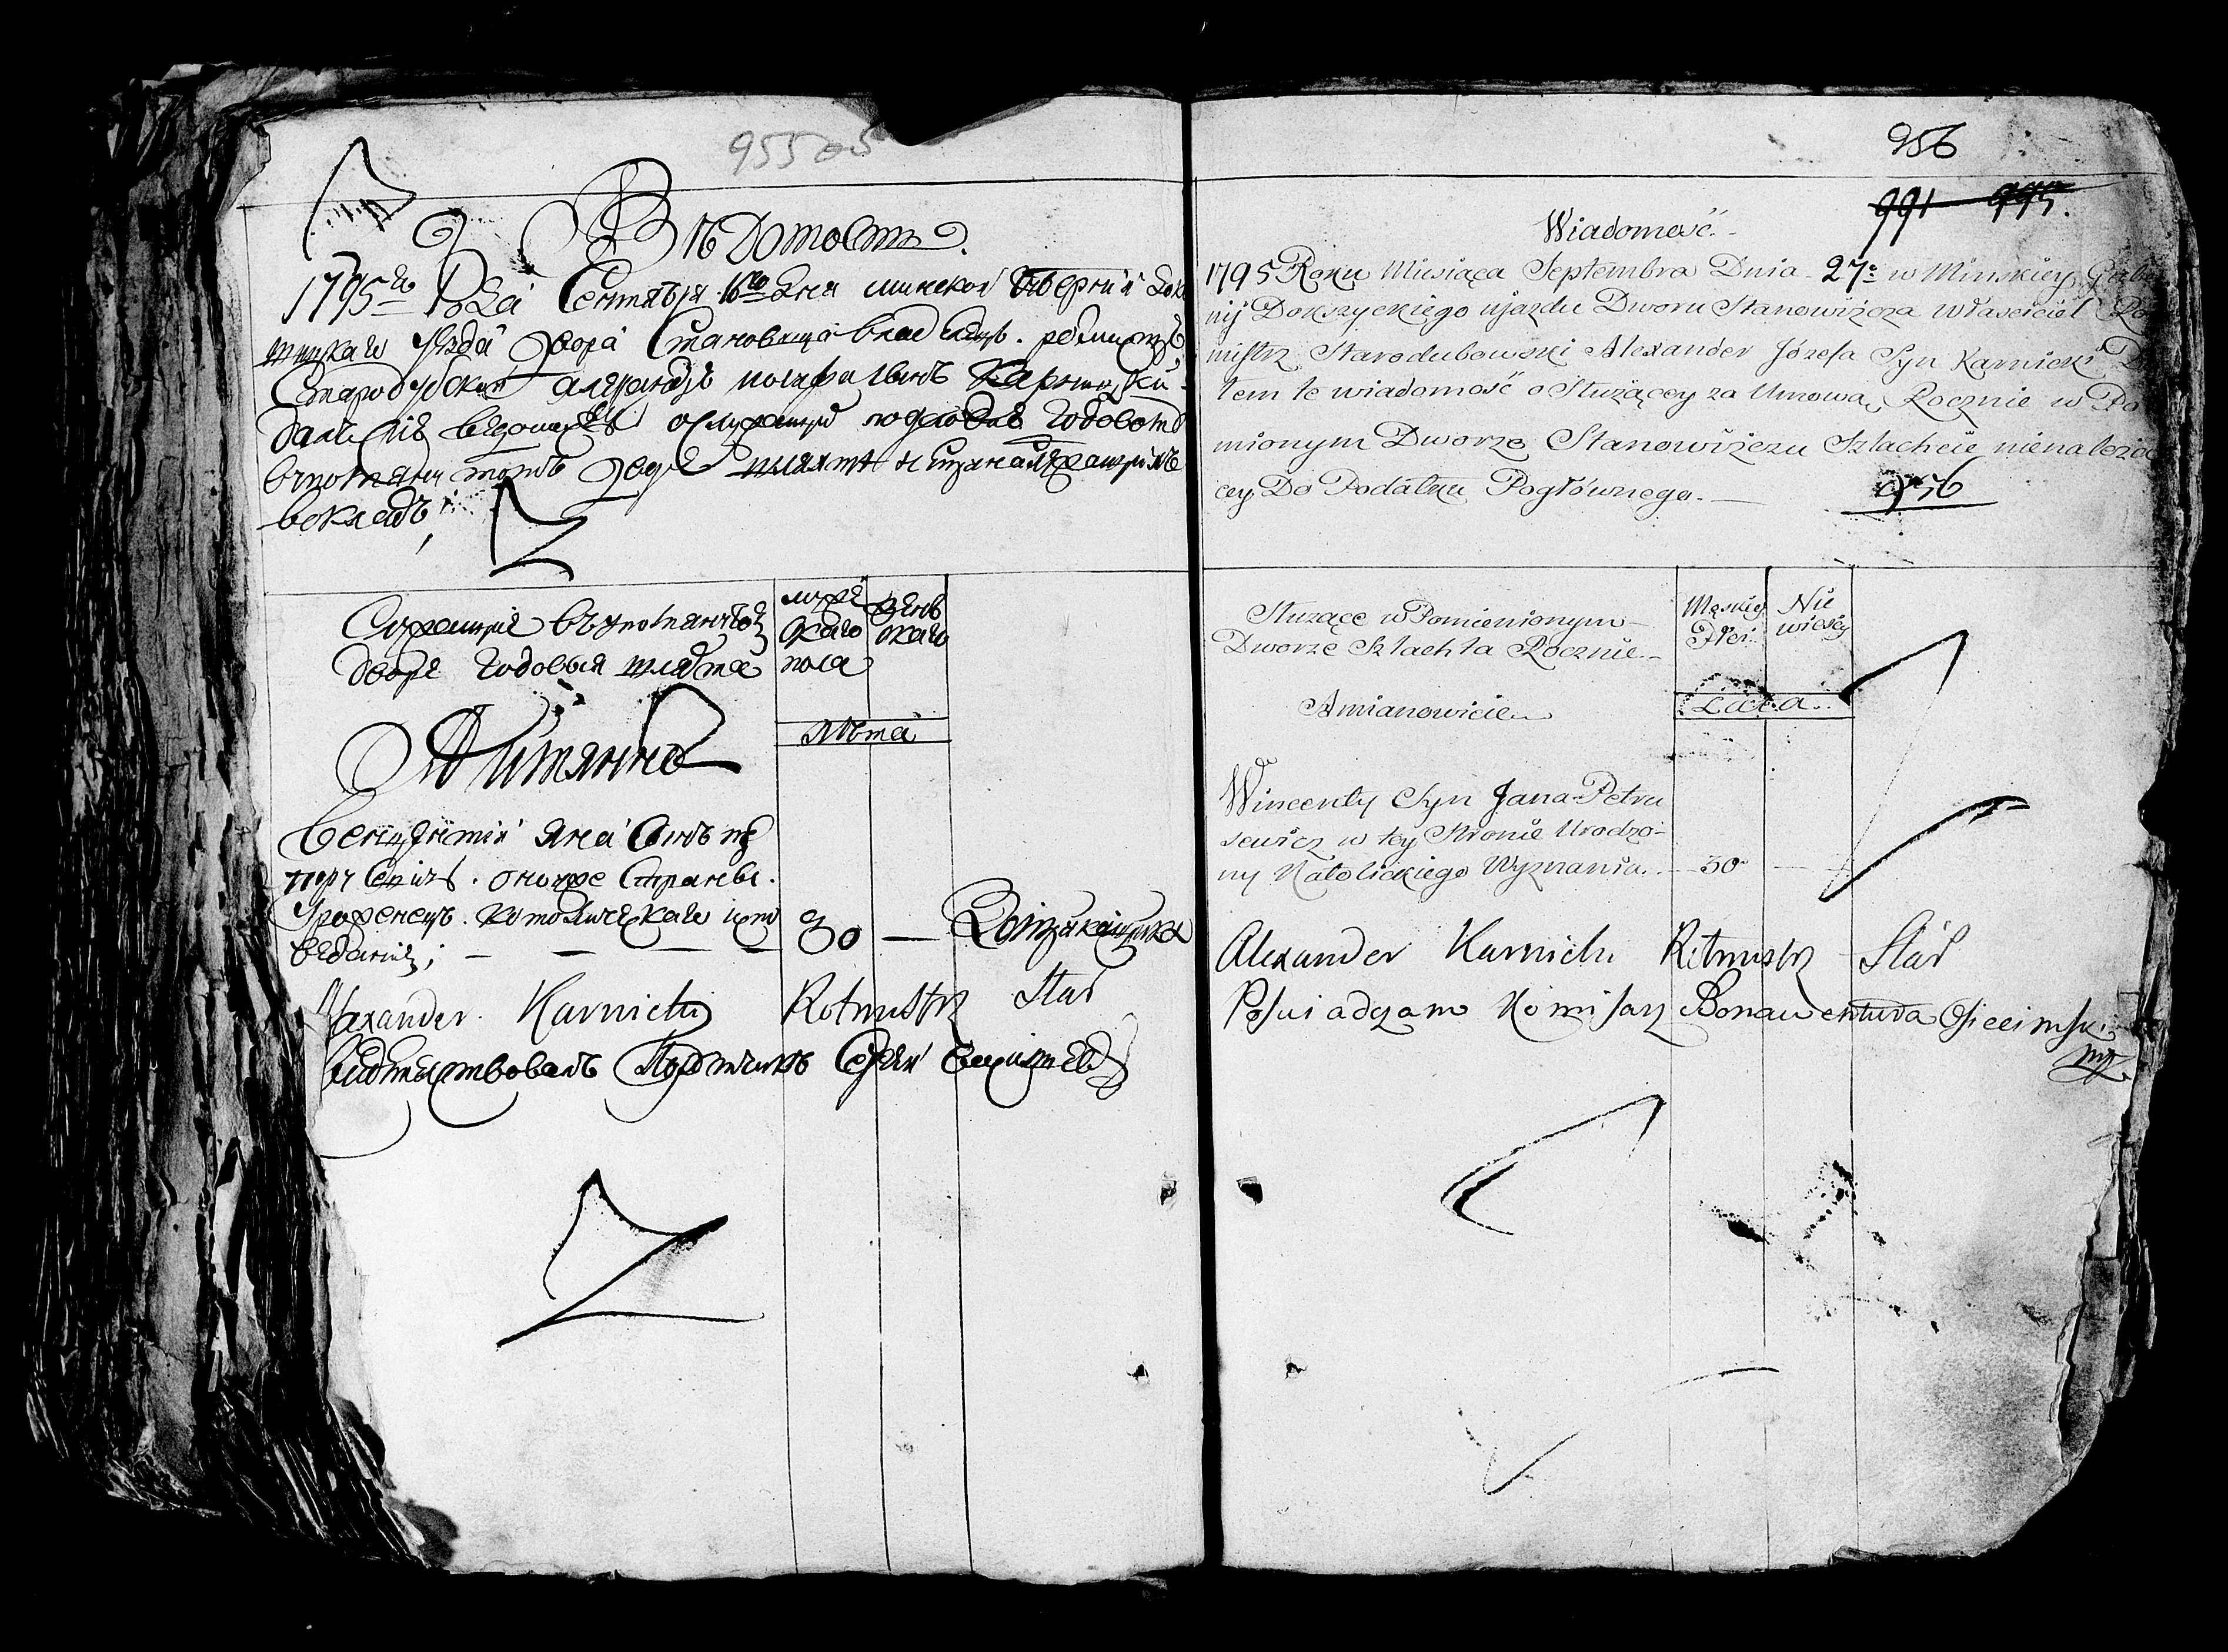 955 об
Вѣдомость
1795го Года Сентября 16го Дня минской губерніи Док
шицкаго уѣзда двора Становища владелецъ ротмистръ
Стародубскій александръ иосифа сынъ Карницкій
далъ сию ведомость о служащей годовой
въ томъ дворе шляхте
вокладъ
Служащие въ упомянутом
дворе годовыя шляхта
муже
скаго
пола
женъ
скаго
Лѣта
А имянно
Венцентий яна Сынъ пе
трусевичъ . оной же страны .
Уроженецъ . католическаго испо
ведания ; — — — — 30 —
Alexander Karnicki Rotmistrz Star
свидетельствовалъ Порутчикъ
956
991 995.
Wiadomość
1795 Roku Miesiąca Septembra Dnia 27o w Minskiey Guber
nij Dokszyckiego ujazdu Dworu Stanowiszcza właściciel Ro
mistrz Starodubowski Alexander Józefa Syn Karnicki
tem te wiadomość o Służącey za Umową Rocznie w Po
mionym Dworze Stanowiszczu Szlachcie nienależą
cey Do Podatku Pogłównego. —
956
Służące w Pomienionym
Dworze Szlachta Rocznie
Męskiey
Płci
Nie
wieścey
Lata
Amianowicie
Wincenty Syn Jana Petru
sewicz w tey Stronie Urodzo-
ny Katolickiego Wyznania. — 30 —
Alexander Karnicki Rotmistrz Star
Poswiadczam Komisarz Bonawentura Osiecimski
mp